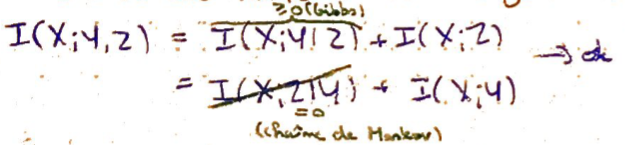 ≥0 (Gibbs)
I(X;Y,Z) = I(X;Y|Z) + I(X;Z) → ok
= I(X;Z|Y) + I(X;Y)
=0
(chaîne de Markov)